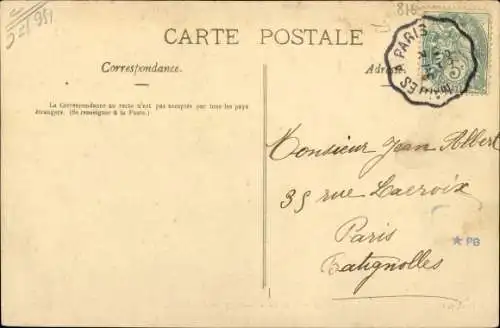 818
CARTE POSTALE
A PARIS
Correspondance.
Adresse
La Correspondance au recto n'est pas acceptée par tous les pays
étrangers. (Se renseigner à la Poste.)
Monsieur Jean Albert
35 rue Lacroix
Paris
Batignolles
PB